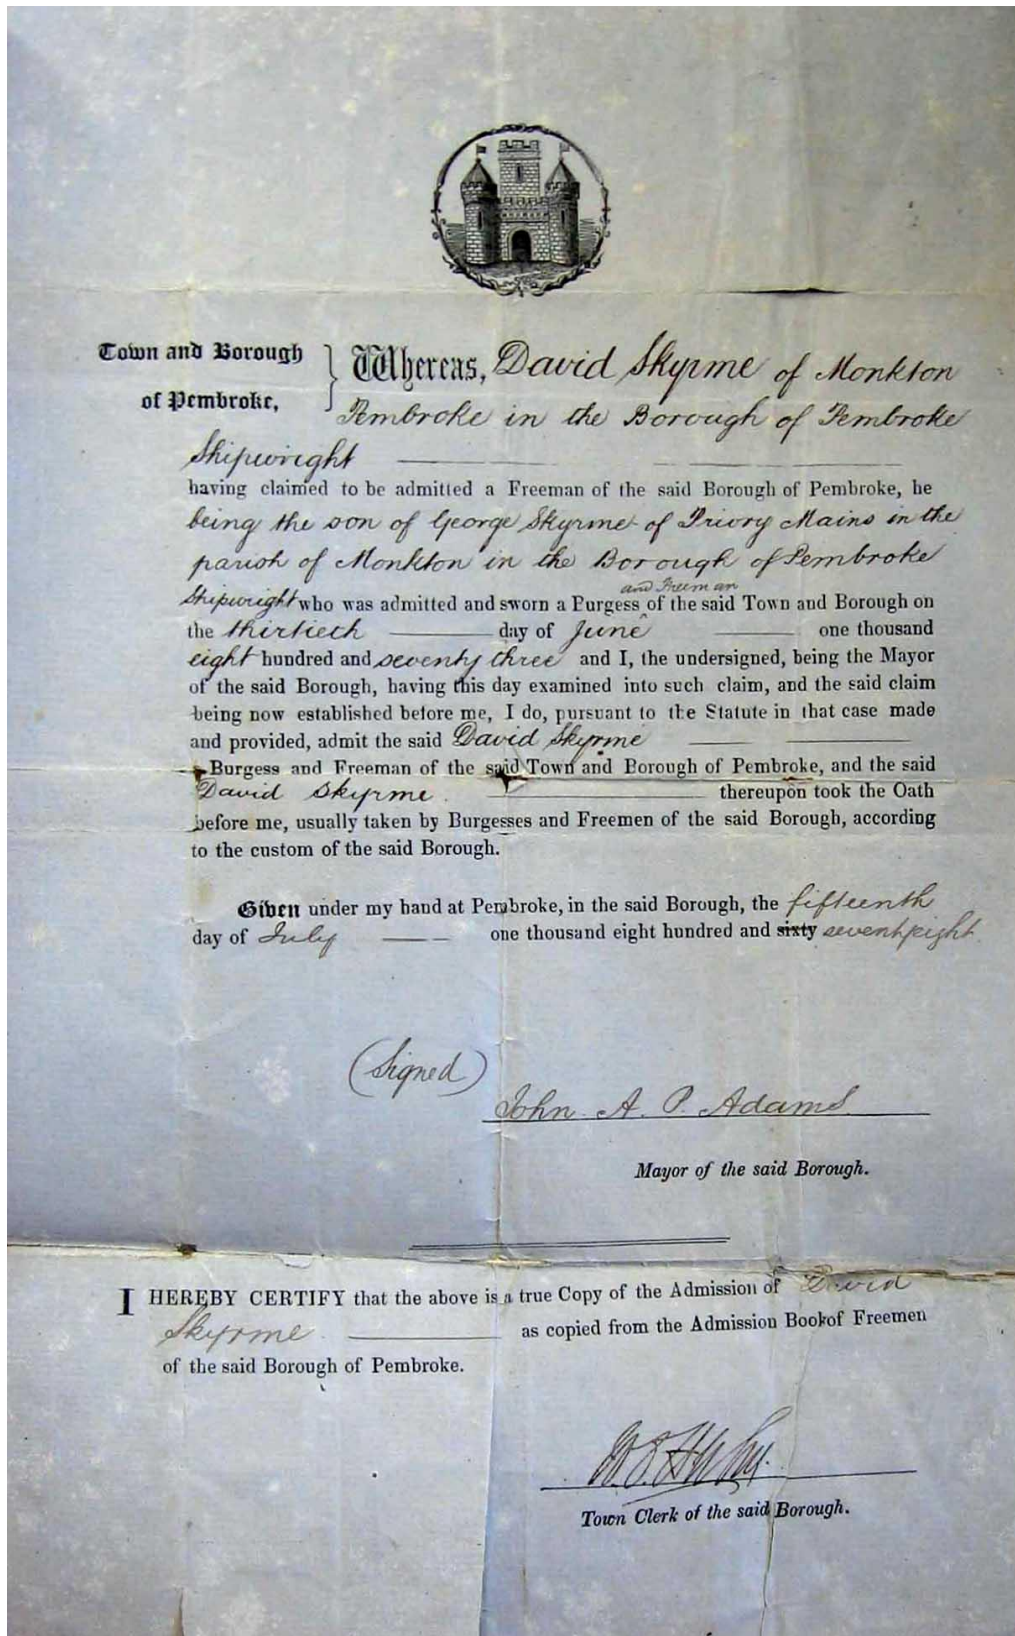 Town and Borough
of Pembroke,
Whereas, David Skyrme of Monkton
Pembroke in the Borough of Pembroke
Shipwright
having claimed to be admitted a Freeman of the said Borough of Pembroke, he
being the son of George Skyrme of Priory Mains in the
parish of Monkton in the Borough of Pembroke
and Freeman
Shipwright who was admitted and sworn a Burgess of the said Town and Borough on
the thirtieth day of June one thousand
eight hundred and seventy three and I, the undersigned, being the Mayor
of the said Borough, having this day examined into such claim, and the said claim
being now established before me, I do, pursuant to the Statute in that case made
and provided, admit the said David Skyrme
Burgess and Freeman of the said Town and Borough of Pembroke, and the said
David Skyrme thereupon took the Oath
before me, usually taken by Burgesses and Freemen of the said Borough, according
to the custom of the said Borough.
Given under my hand at Pembroke, in the said Borough, the fifteenth
day of July one thousand eight hundred and sixty seventyeight
(Signed)
John A. P. Adams
Mayor of the said Borough.
I HEREBY CERTIFY that the above is a true Copy of the Admission of David
Skyrme as copied from the Admission Book of Freemen
of the said Borough of Pembroke.
Town Clerk of the said Borough.